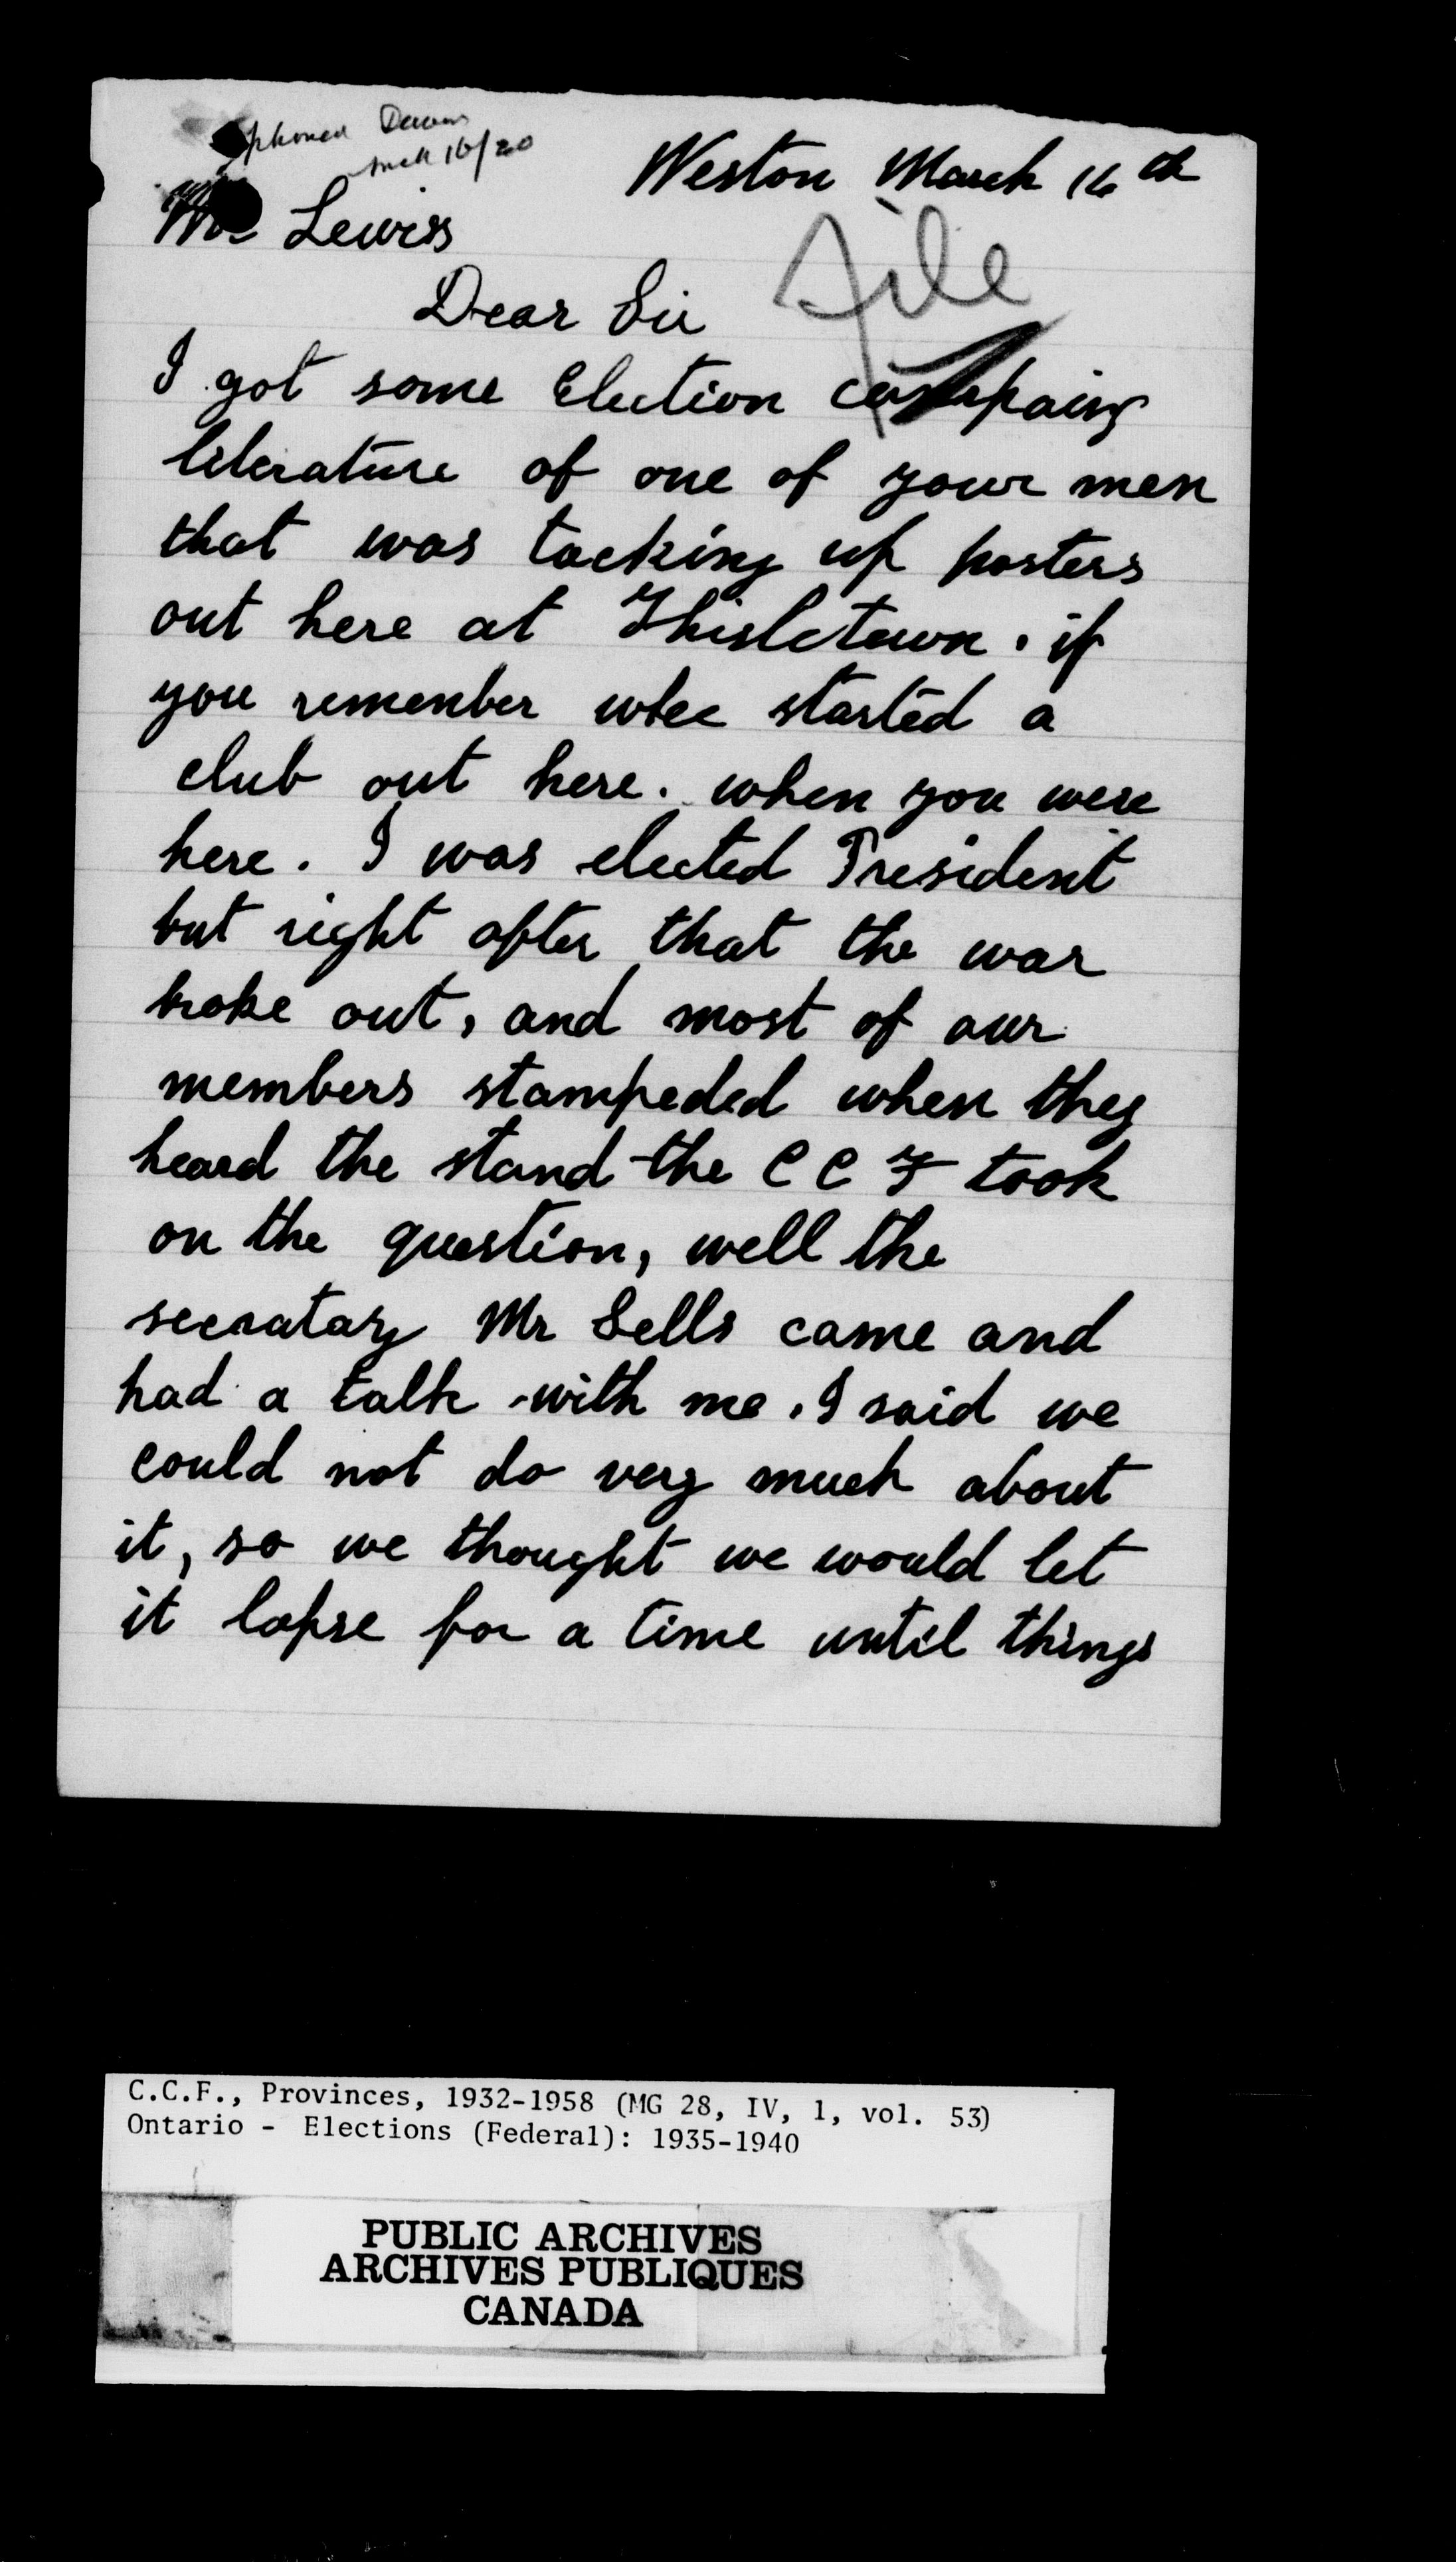 phoned
16/20
Weston March 16th
Mr Lewis
File
Dear Sir
I got some Election campaing
literature of one of your men
that was tacking up posters
out here at Thisletown. if
you remenber whee started a
club out here. when you were
here. I was elected President
but right after that the war
broke out, and most of our
members stampeded when they
heard the stand the C C F took
on the question, well the
secratary Mr Sells came and
had a talk with me. I said we
could not do very much about
it, so we thought we would let
it lapse for a time until things
C.C.F., Provinces, 1932-1958 (MG 28, IV, 1, vol. 53)
Ontario - Elections (Federal): 1935-1940
PUBLIC ARCHIVES
ARCHIVES PUBLIQUES
CANADA